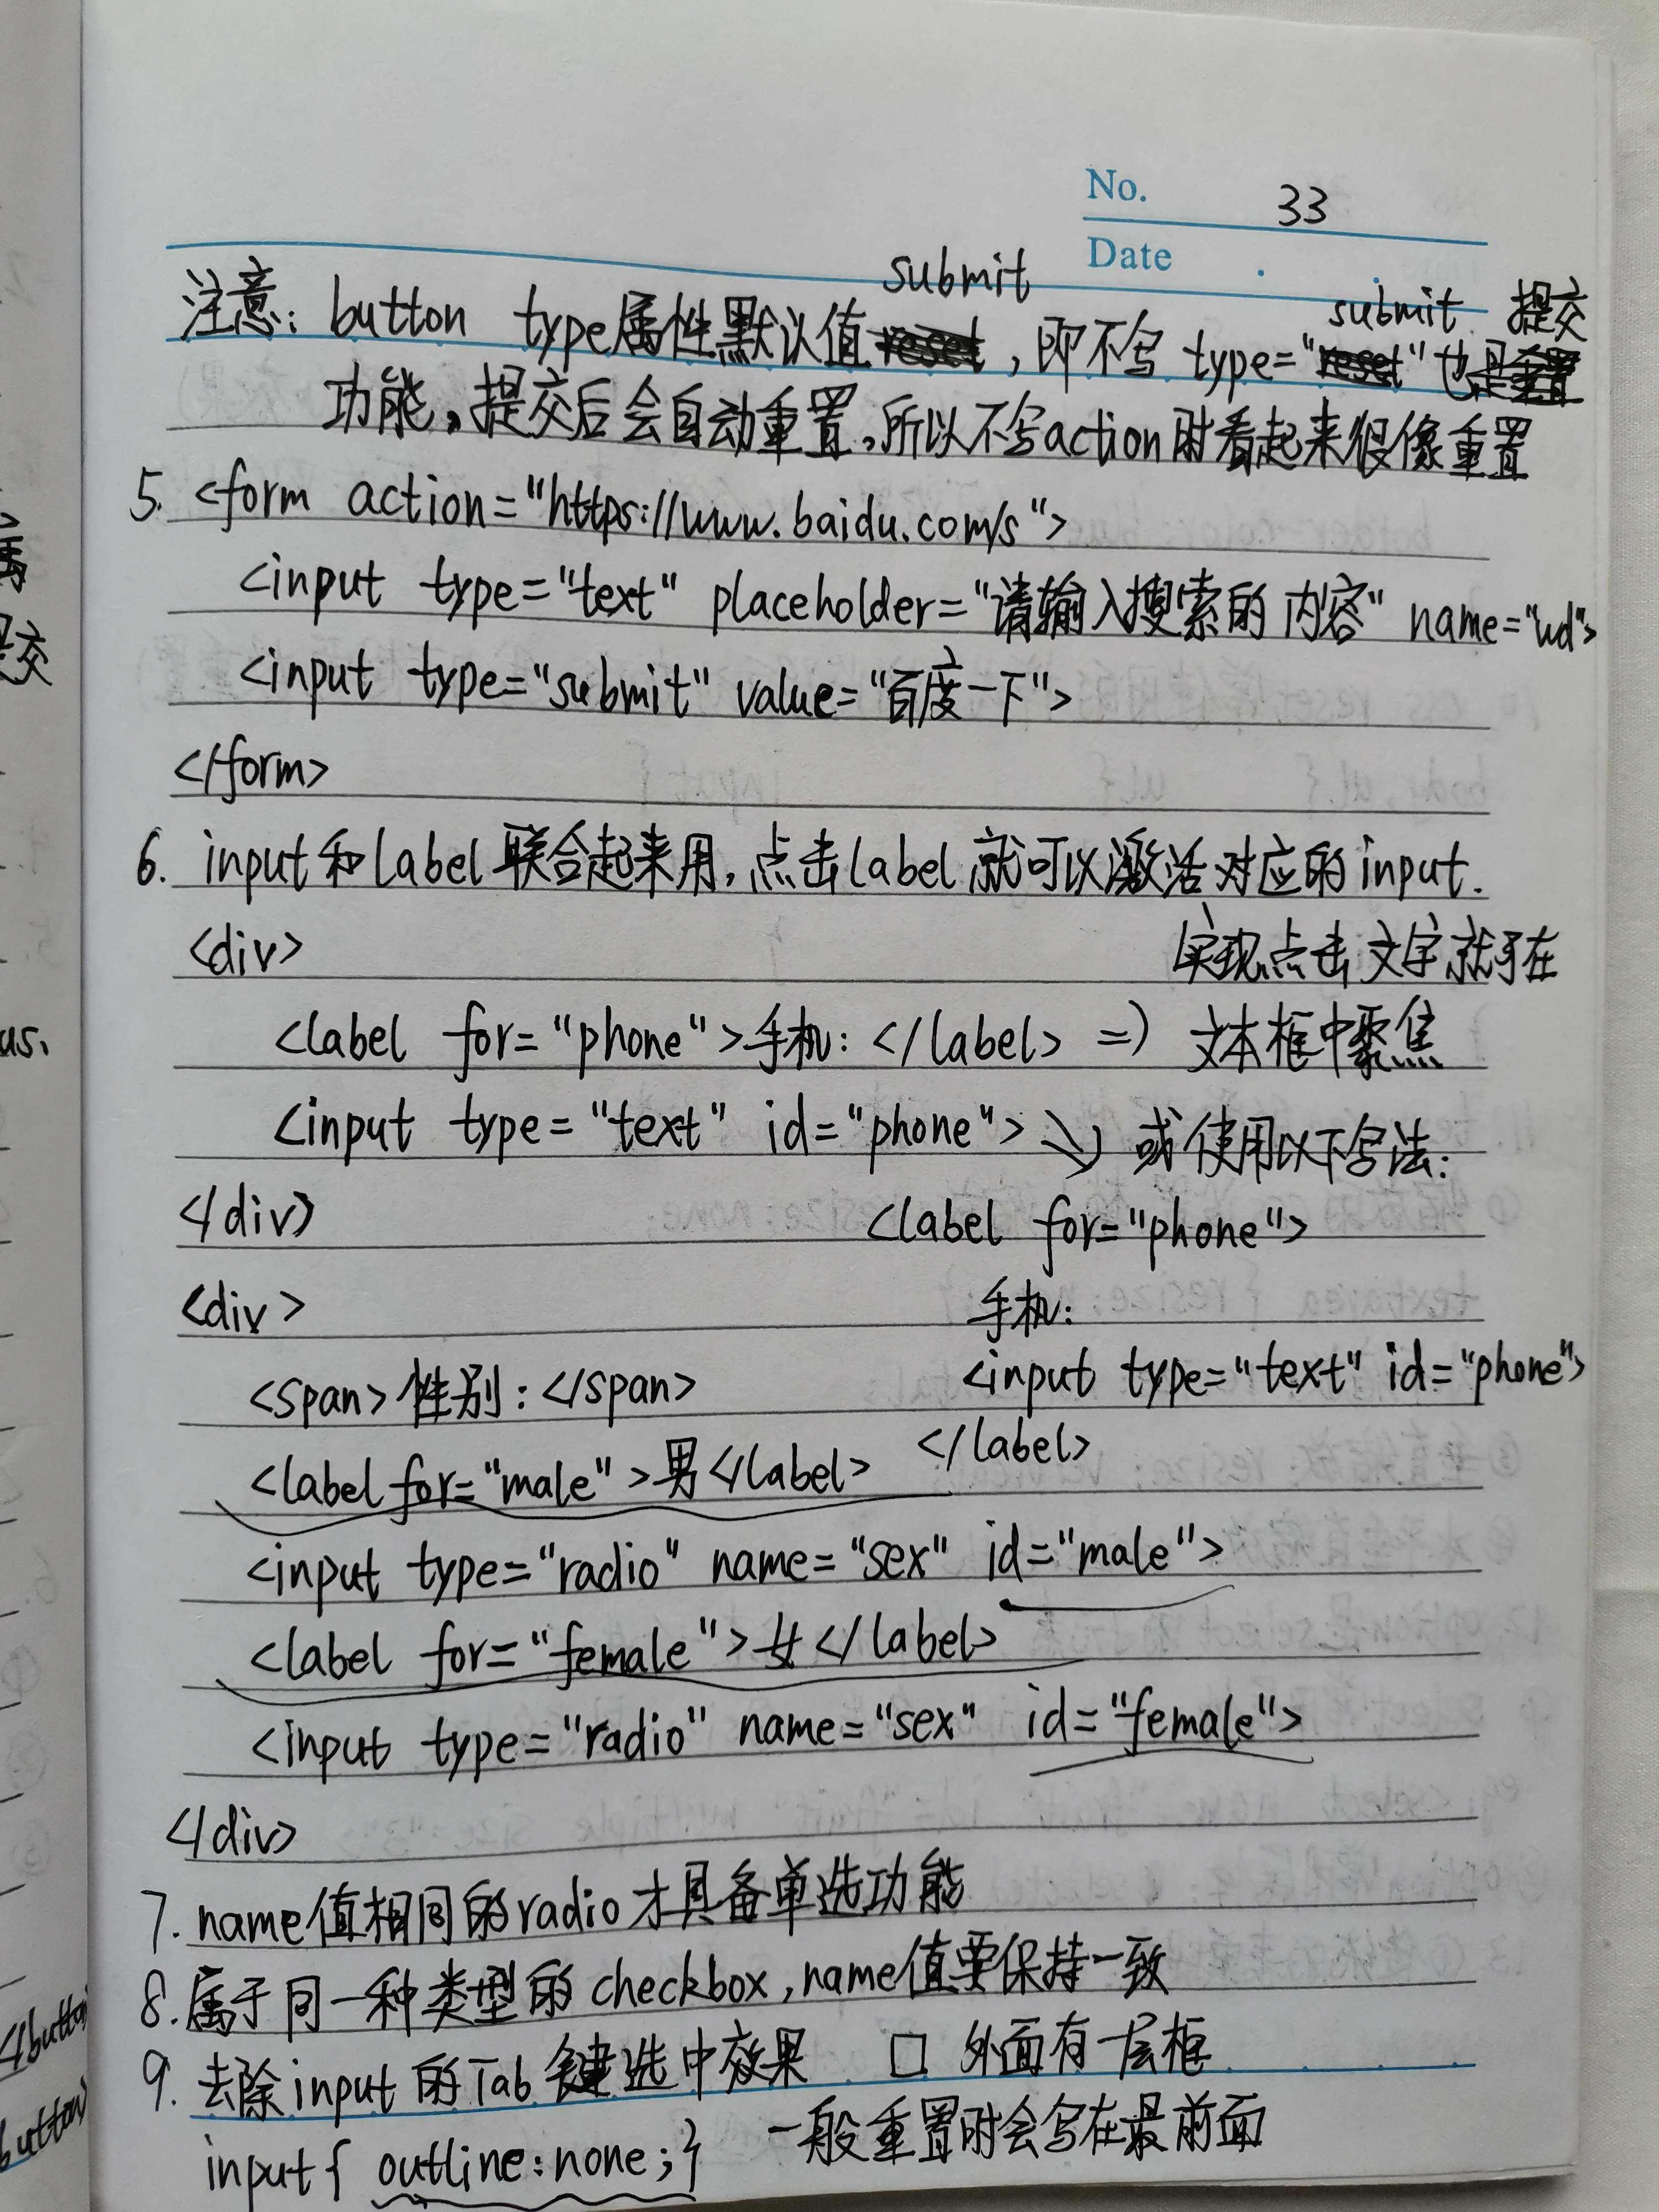 No. 33
Date
注意: button type属性默认值submit, 即不写 type="submit"也是提交
功能,提交后会自动重置,所以不写action时看起来很像重置
5. <form action="https://www.baidu.com/s">
<input type="text" placeholder="请输入搜索的内容" name="wd">
<input type="submit" value="百度一下">
</form>
6. input和label联合起来用,点击label就可以激活对应的input.
<div> 实现点击文字就可在
<label for="phone">手机: </label> => 文本框中聚焦
<input type="text" id="phone"> 或使用以下写法:
</div> <label for="phone">
<div> 手机:
<span>性别:</span> <input type="text" id="phone">
<label for="male">男</label> </label>
<input type="radio" name="sex" id="male">
<label for="female">女</label>
<input type="radio" name="sex" id="female">
</div>
7. name值相同的radio才具备单选功能
8. 属于同一种类型的checkbox,name值要保持一致
9. 去除input的Tab键选中效果 □ 外面有一层框
input{ outline:none;} 一般重置时会写在最前面
属
提交
us.
</button
button>